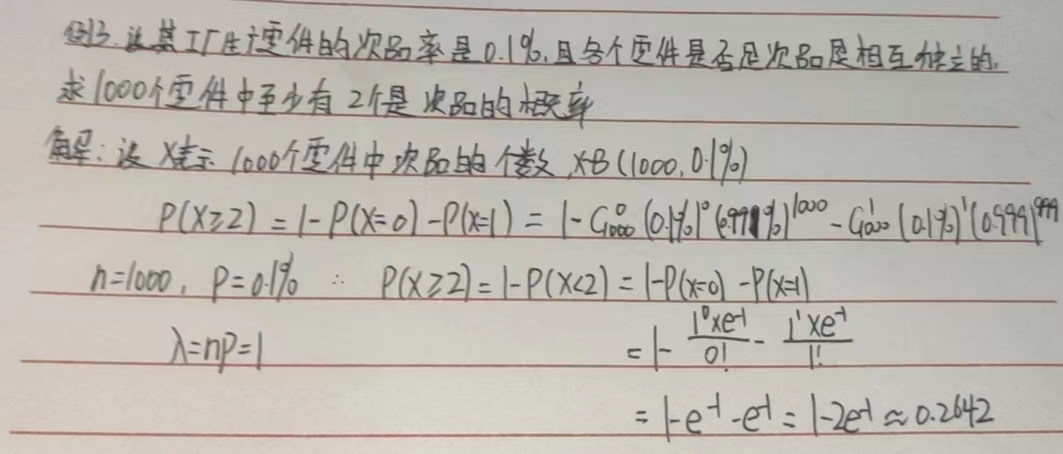 例3.设某工厂生产零件的次品率是0.1%.且各个零件是否是次品是相互独立的.
求1000个零件中至少有2个是次品的概率
解:设X表示1000个零件中次品的个数,X~B(1000,0.1%)
P(X≥2)=1-P(X=0)-P(X=1)=1-C₁₀₀₀⁰(0.1%)⁰(0.999)¹⁰⁰⁰-C₁₀₀₀¹(0.1%)¹(0.999)⁹⁹⁹
n=1000, P=0.1% ∴ P(X≥2)=1-P(X<2)=1-P(X=0)-P(X=1)
λ=np=1 =1-\frac{1⁰×e⁻¹}{0!}-\frac{1¹×e⁻¹}{1!}
=1-e⁻¹-e⁻¹=1-2e⁻¹≈0.2642